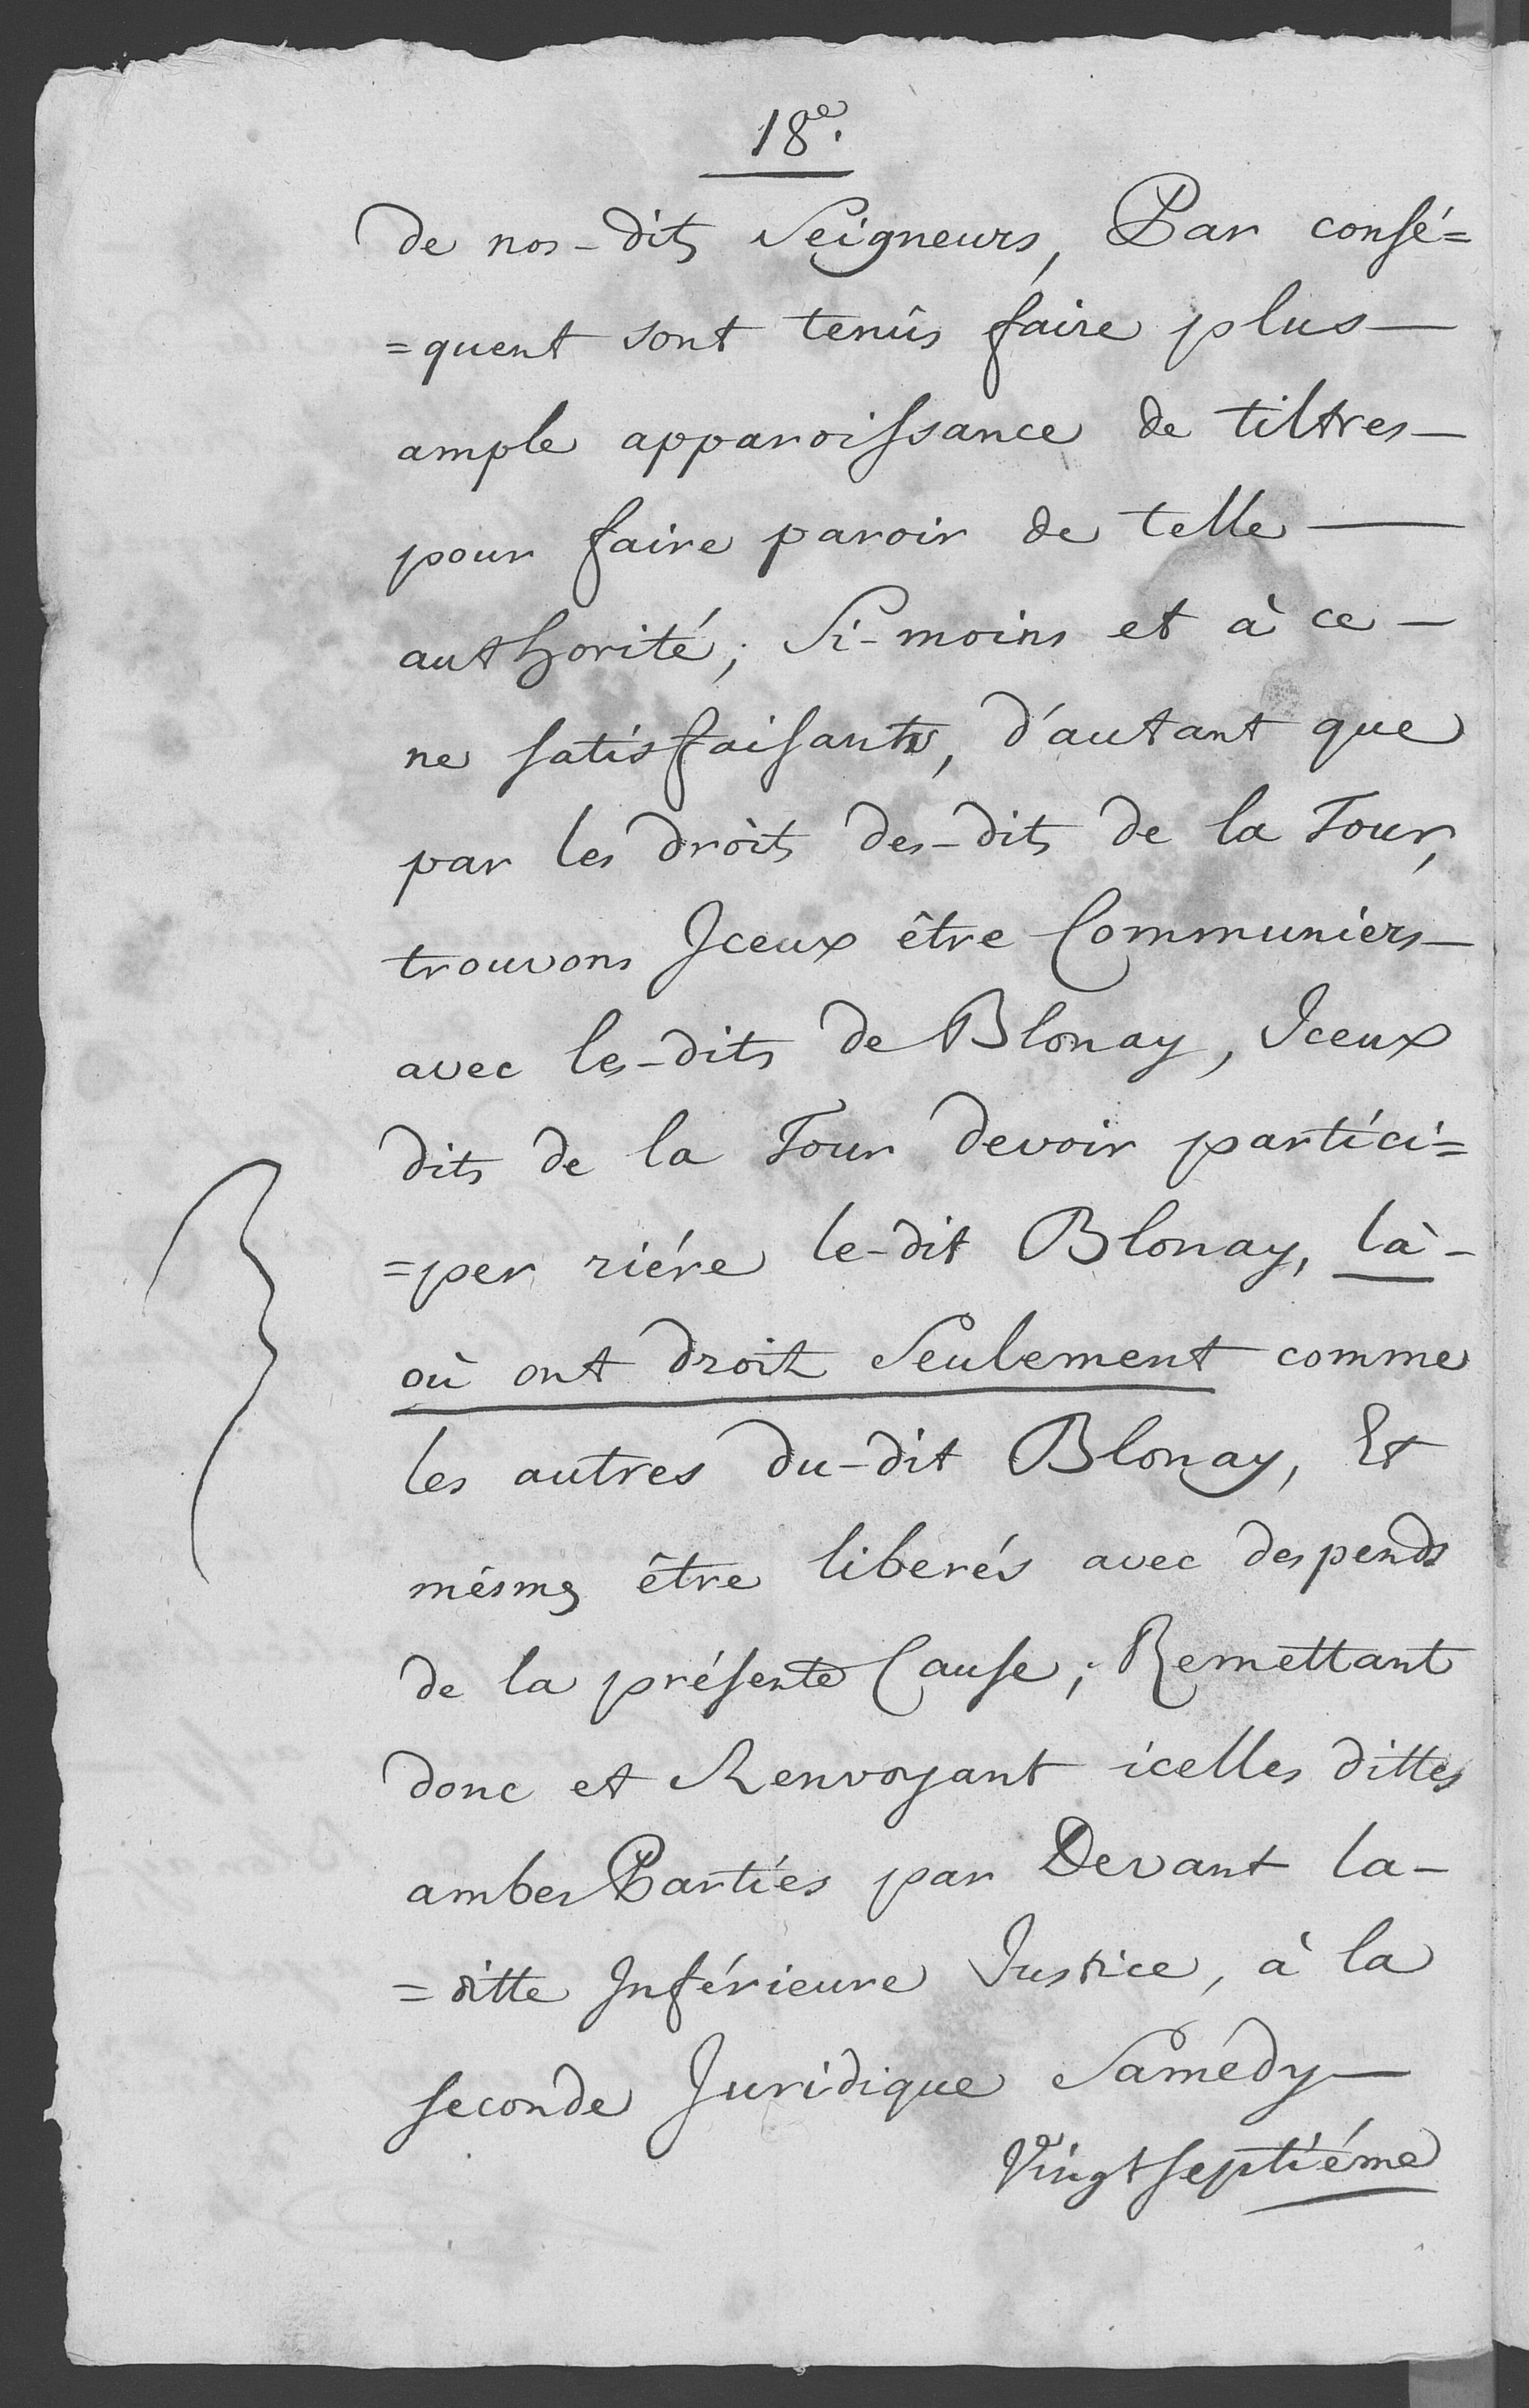 18e.
de nos-dits Seigneurs, Par consé=
=quent sont tenûs faire plus—
ample apparoissance de tiltres—
pour faire paroir de telle —
authorité; Si-moins et à ce —
ne satisfaisants, d'autant que
par les droits des-dits de la Tour,
trouvons Iceux être Communiers—
avec les-dits de Blonay, Iceux
dits de la Tour devoir partici=
=per riére le-dit Blonay, là-
où ont droit Seulement comme
les autres du-dit Blonay, Et
mésmes être liberés avec despends
de la présente Cause; Remettant
donc et Renvoyant icelles dittes
ambes Parties par Devant la-
=ditte Inférieure Justice, à la
seconde Juridique Samedy—
Vingtseptiéme